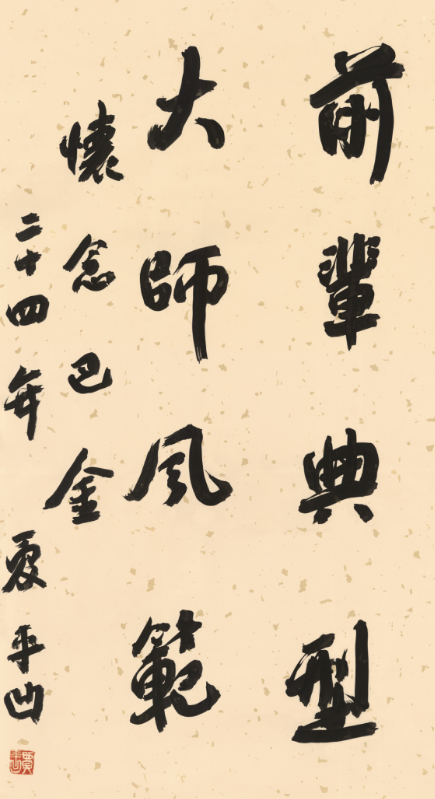 前輩典型
大師風範
懷念巴金
二十四年夏平凹